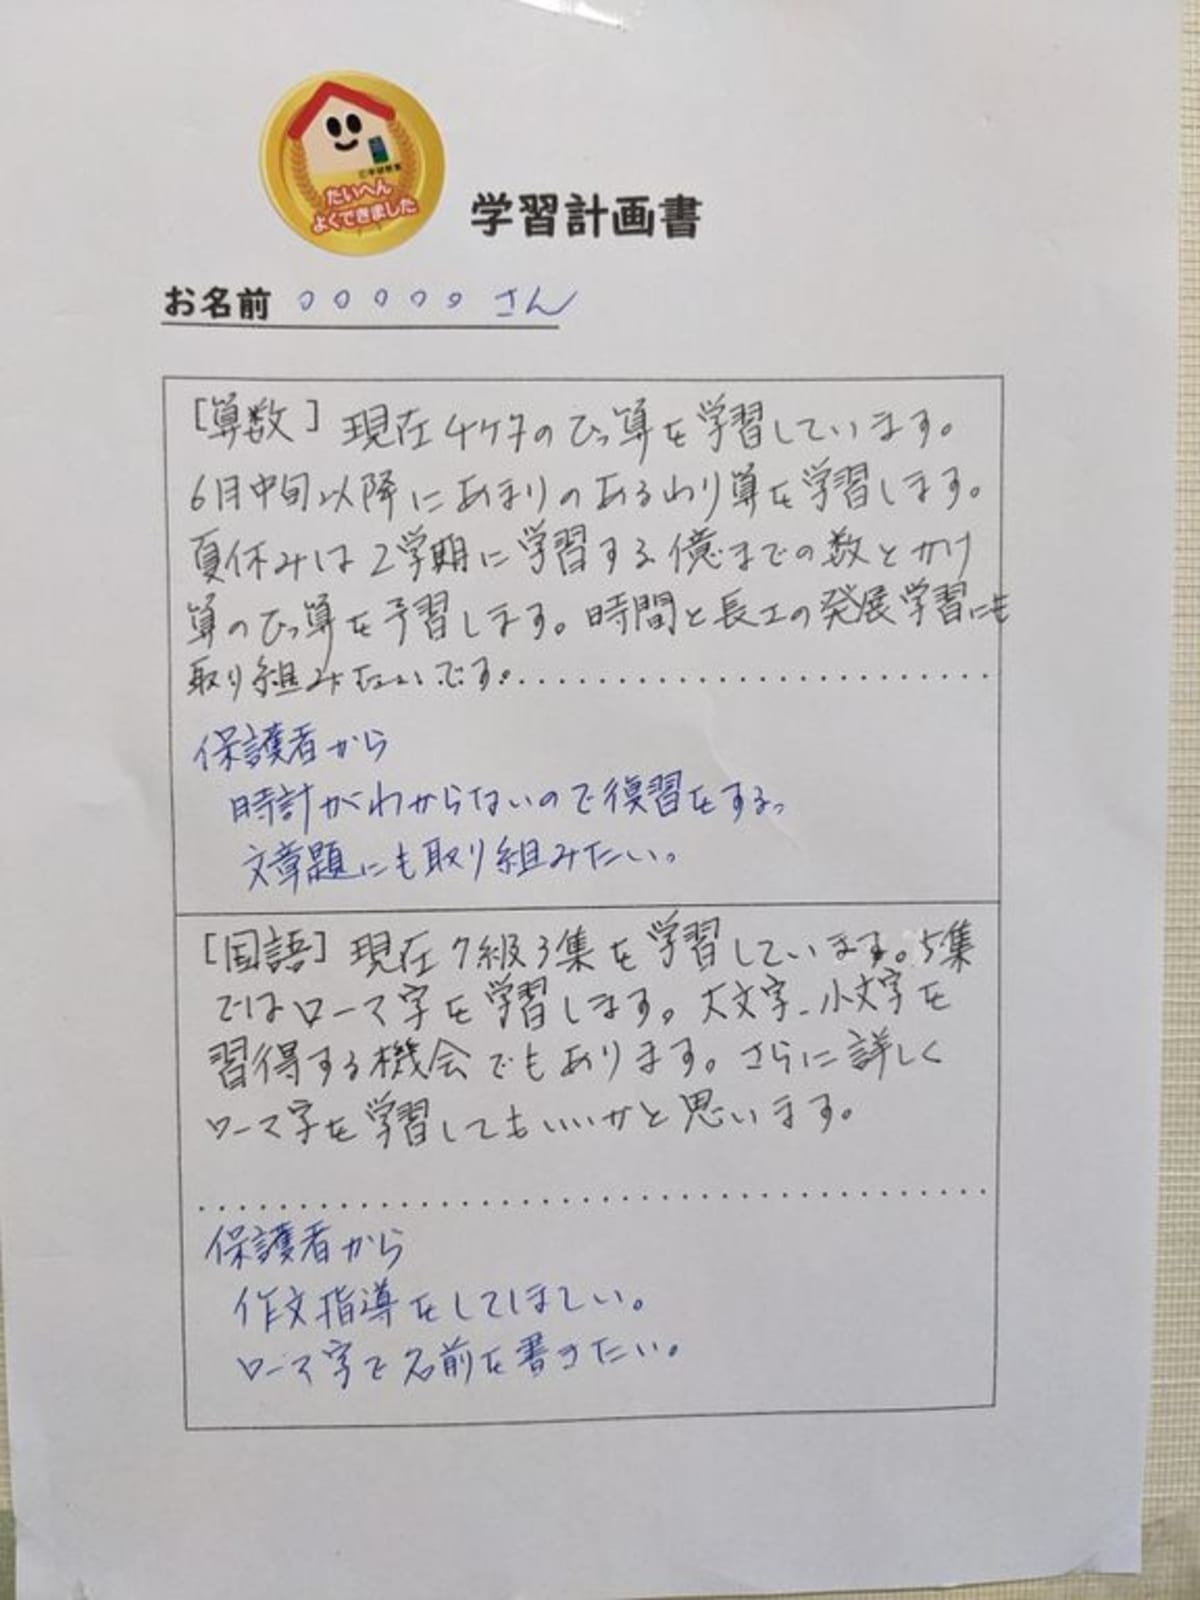 たいへん
よくできました
学習計画書
お名前 ○○○○○ さん
[算数] 現在4ケタのひっ算を学習しています。
6月中旬以降にあまりのあるわり算を学習します。
夏休みは2学期に学習する億までの数とかけ
算のひっ算を予習します。時間と長さの発展学習にも
取り組みたいです。
保護者から
時計がわからないので復習をする。
文章題にも取り組みたい。
[国語] 現在7級3集を学習しています。5集
ではローマ字を学習します。大文字、小文字を
習得する機会でもあります。さらに詳しく
ローマ字を学習してもいいかと思います。
保護者から
作文指導をしてほしい。
ローマ字で名前を書きたい。